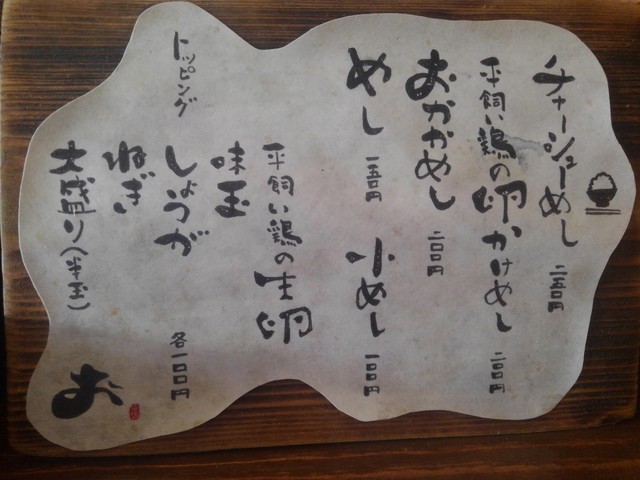 チャーシューめし 二五〇円
平飼い鶏の卵かけめし 二〇〇円
おかかめし 二〇〇円
めし 一五〇円 小めし 一〇〇円
トッピング
平飼い鶏の生卵
味玉
しょうが 各一〇〇円
ねぎ
大盛り(半玉)
お